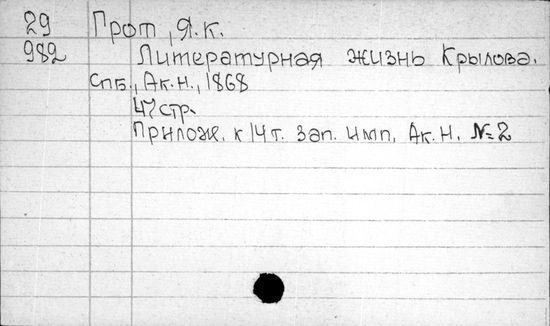 29 Грот, Я.К.
982 Литературная жизнь Крылова.
Спб., Ак.Н., 1868
47 стр.
Прилож. к 14 т. Зап. Имп. Ак. Н. №2